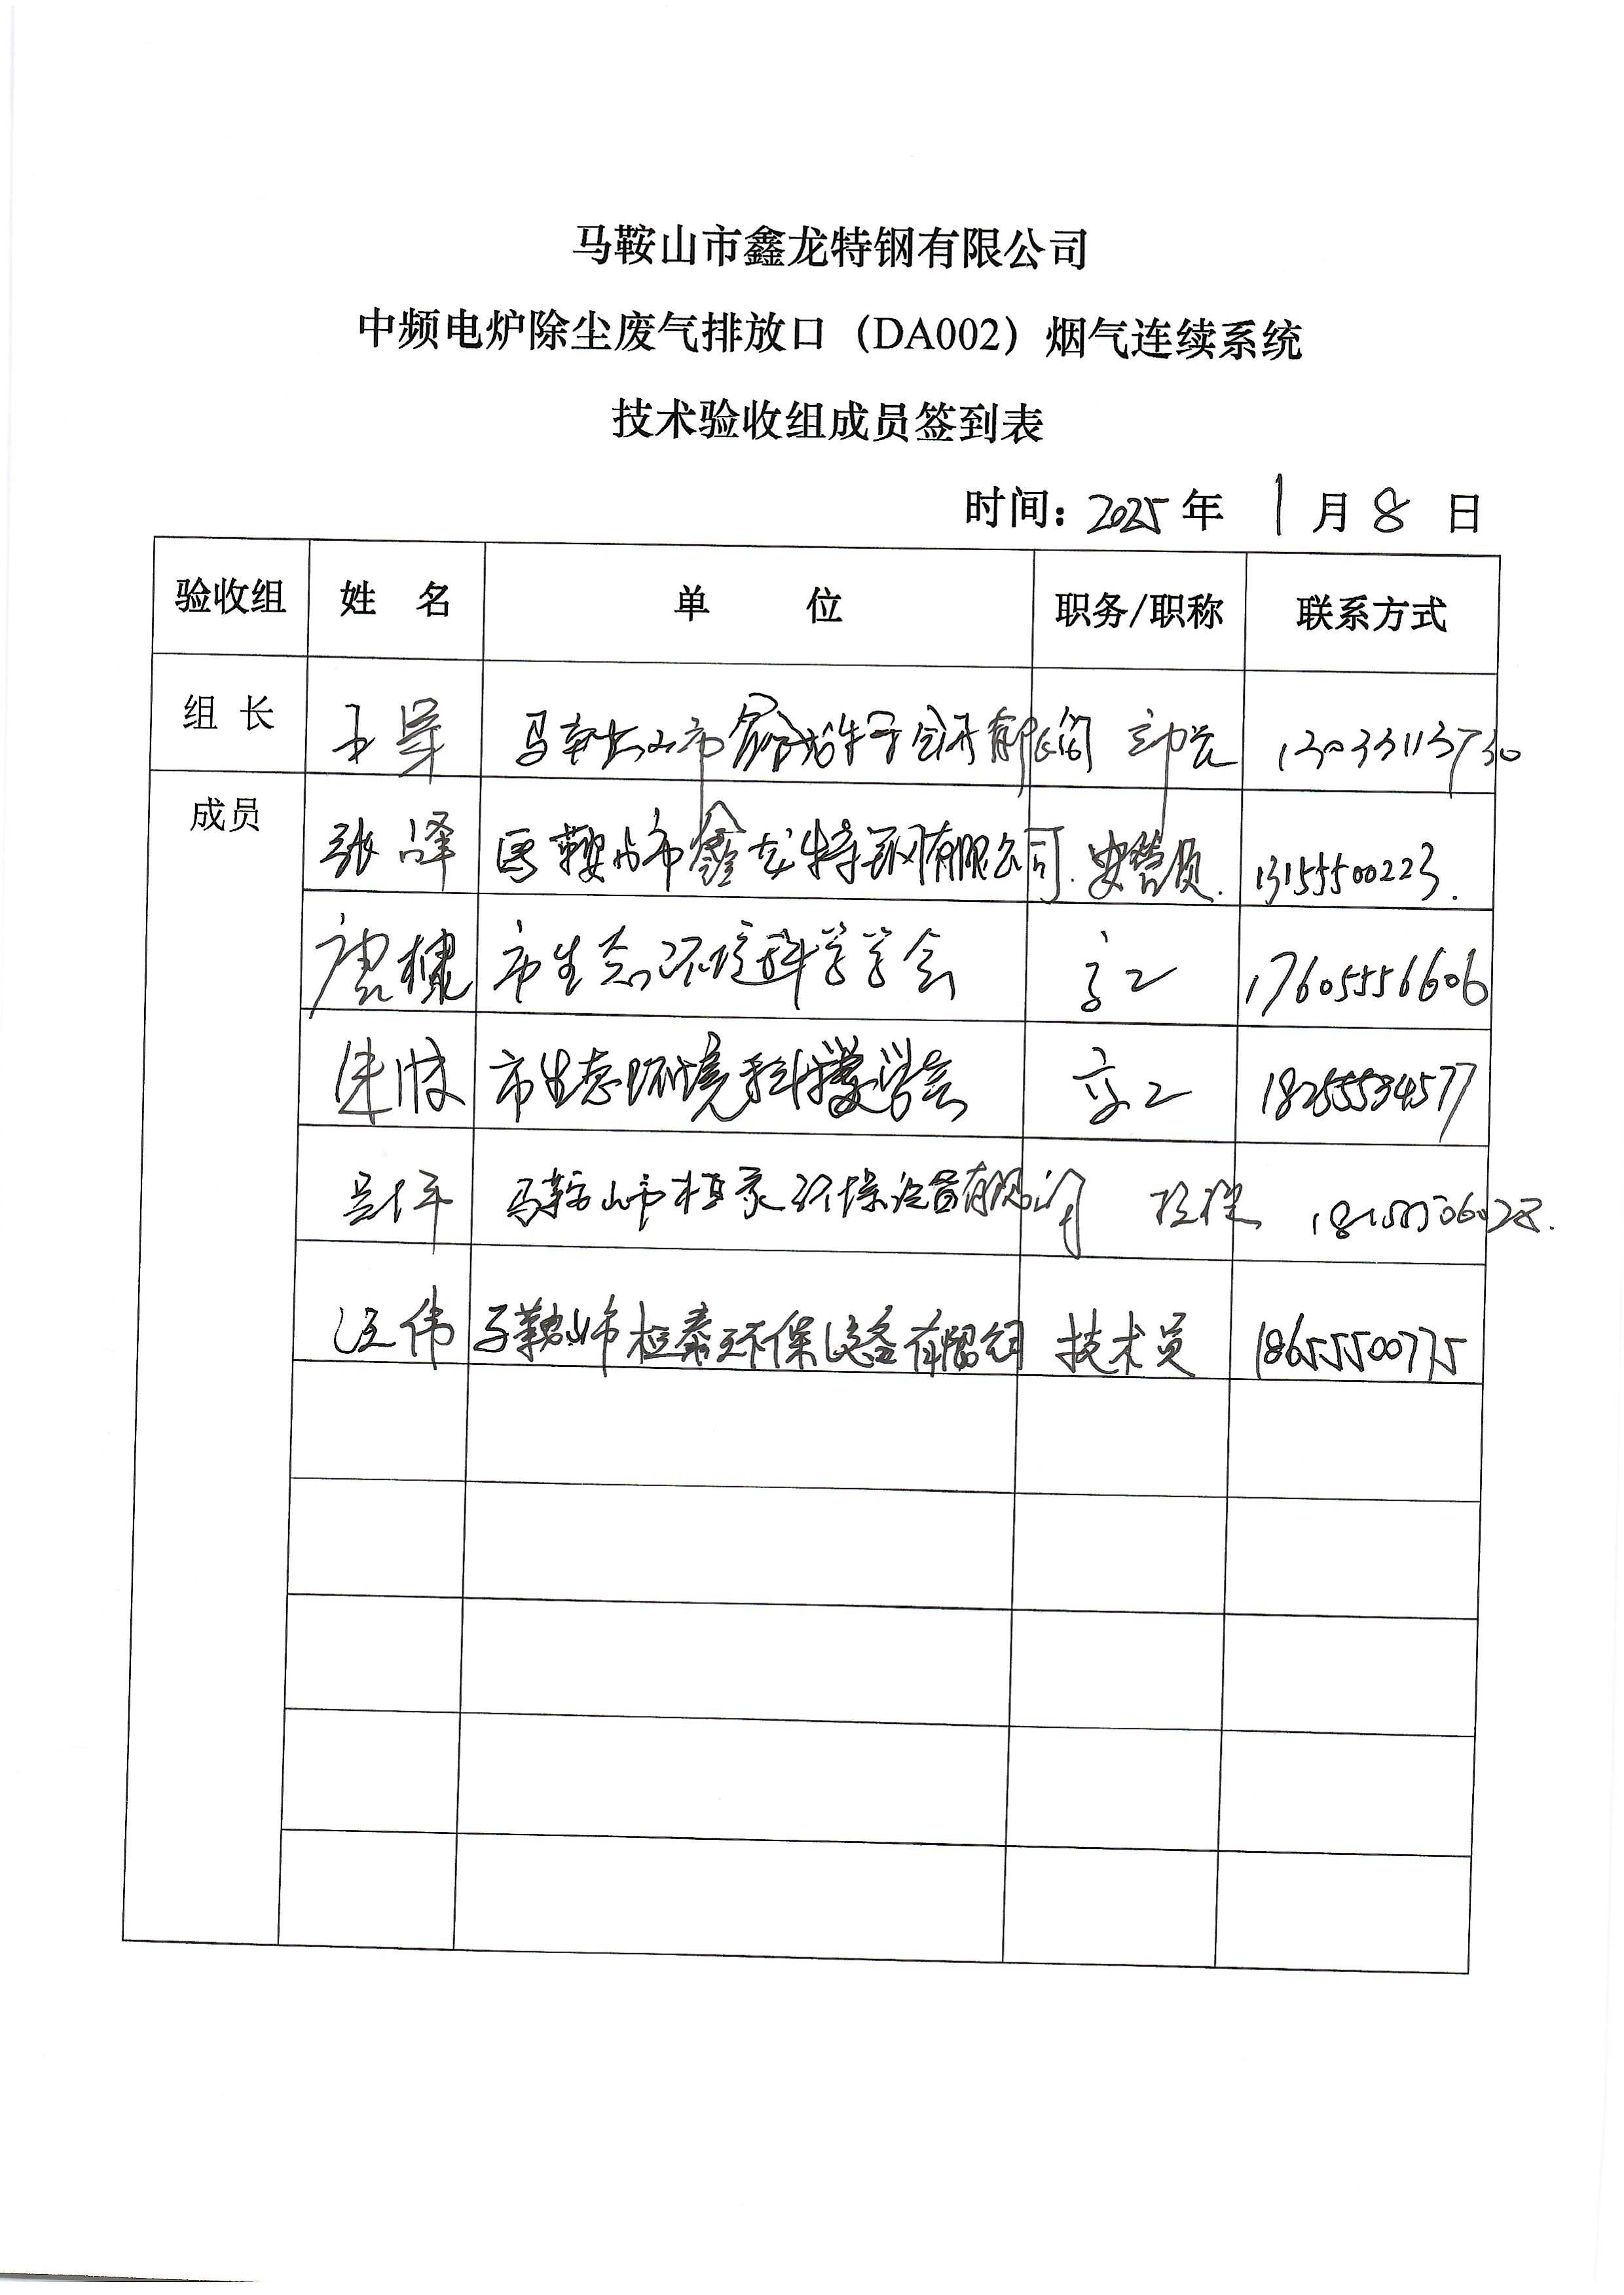 马鞍山市鑫龙特钢有限公司
中频电炉除尘废气排放口（DA002）烟气连续系统
技术验收组成员签到表
时间：2025年 1月8 日
验收组 姓 名 单 位 职务/职称 联系方式
组 长 王 马鞍山市鑫龙特钢有限公司 部长
成员 张泽 马鞍山市鑫龙特钢有限公司. 安管员. 13155500223.
唐 市生态环境科学学会 高工 17605556606
朱 市生态环境科学学会 高工 18255534577
马鞍山市桓泰环保设备有限公司
汪伟 马鞍山市桓泰环保设备有限公司 技术员 18655500775